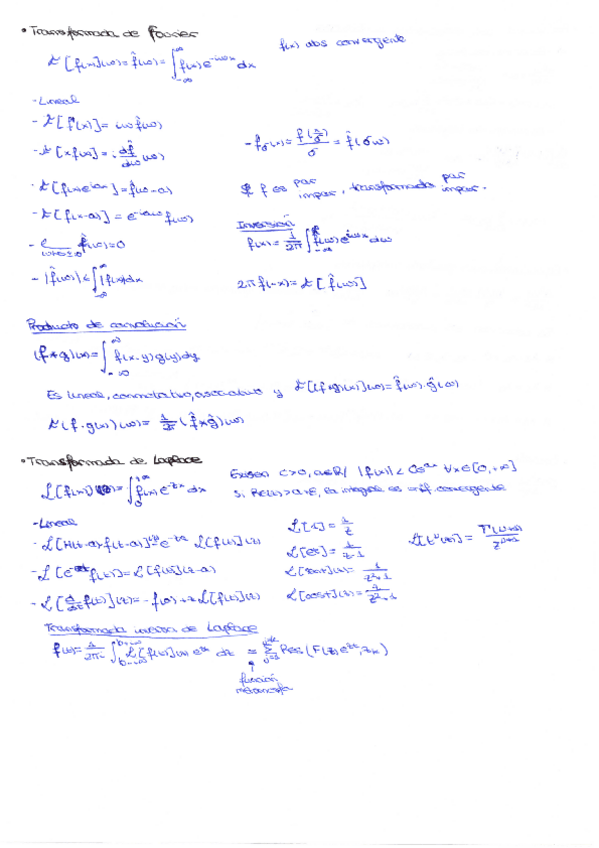 • Transformada de Fourier
f(x) abs convergente
F[f(x)](ω) = f̂(ω) = ∫_{-∞}^{∞} f(x) e^{-iωx} dx
- Lineal
- F[f'(x)] = iω f̂(ω)
- F[x f(x)] = i df̂/dω (ω)
- f_σ(x) = f(x/σ)/σ = f̂(σω)
- F[f(x)e^{iax}] = f̂(ω-a)
Si f es par impar, transformada par impar.
- F[f(x-a)] = e^{-iaω} f̂(ω)
Inversión
f(x) = 1/2π ∫_{-∞}^{∞} f̂(ω) e^{iωx} dω
- ℓ_{ω→±∞} f̂(ω) = 0
- |f̂(ω)| ≤ ∫_{-∞}^{∞} |f(x)| dx
2π f(-x) = F[f̂(ω)]
Producto de convolución
(f * g)(x) = ∫_{-∞}^{∞} f(x-y) g(y) dy
Es lineal, conmutativo, asociativo y F[(f*g)(x)](ω) = f̂(ω)·ĝ(ω)
F(f·g(x))(ω) = 1/2π (f̂ * ĝ)(ω)
• Transformada de Laplace
Existen C>0, a∈R / |f(x)| < Ce^{ax} ∀x∈[0,+∞]
L[f(x)](z) = ∫_{0}^{+∞} f(x) e^{-zx} dx
Si Re(z) > a+ε, la integral es unif. convergente
- Lineal
L[1] = 1/z
- L[H(t-a)·f(t-a)] = e^{-za} L[f(t)](z)
L[e^t] = 1/z-1
L[t^n](z) = Γ(n+1)/z^{n+1}
- L[e^{at} f(t)] = L[f(t)](z-a)
L[sen t](z) = 1/z²+1
- L[d/dt f(t)](z) = -f(0) + z L[f(t)](z)
L[cos t](z) = z/z²+1
Transformada inversa de Laplace
f(x) = 1/2πi ∫_{b-i∞}^{b+i∞} L[f(t)](z) e^{zx} dz = Σ Res(F(z)e^{zx}, z_k)
función
meromorfa